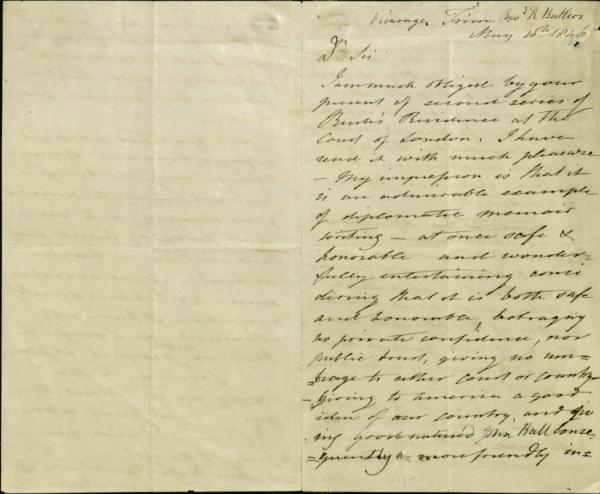 Vicarage. Trim Revd R Butlers
May 18th 1846
Dr Sir
I am much obliged by your
present of second series of
Rush's Residence at the
Court of London. I have
read it with much pleasure
– My impression is that it
is an admirable example
of diplomatic memoir
writing – at once safe &
honorable and wonder=
fully entertaining consi
dering that it is both safe
and honorable, betraying
no private confidence, nor
public trust, giving no um=
=brage to either Court or Country –
– Giving to America a good
idea of our country, and giv
ing goodnatured John Bull conse
=quently a more friendly in=